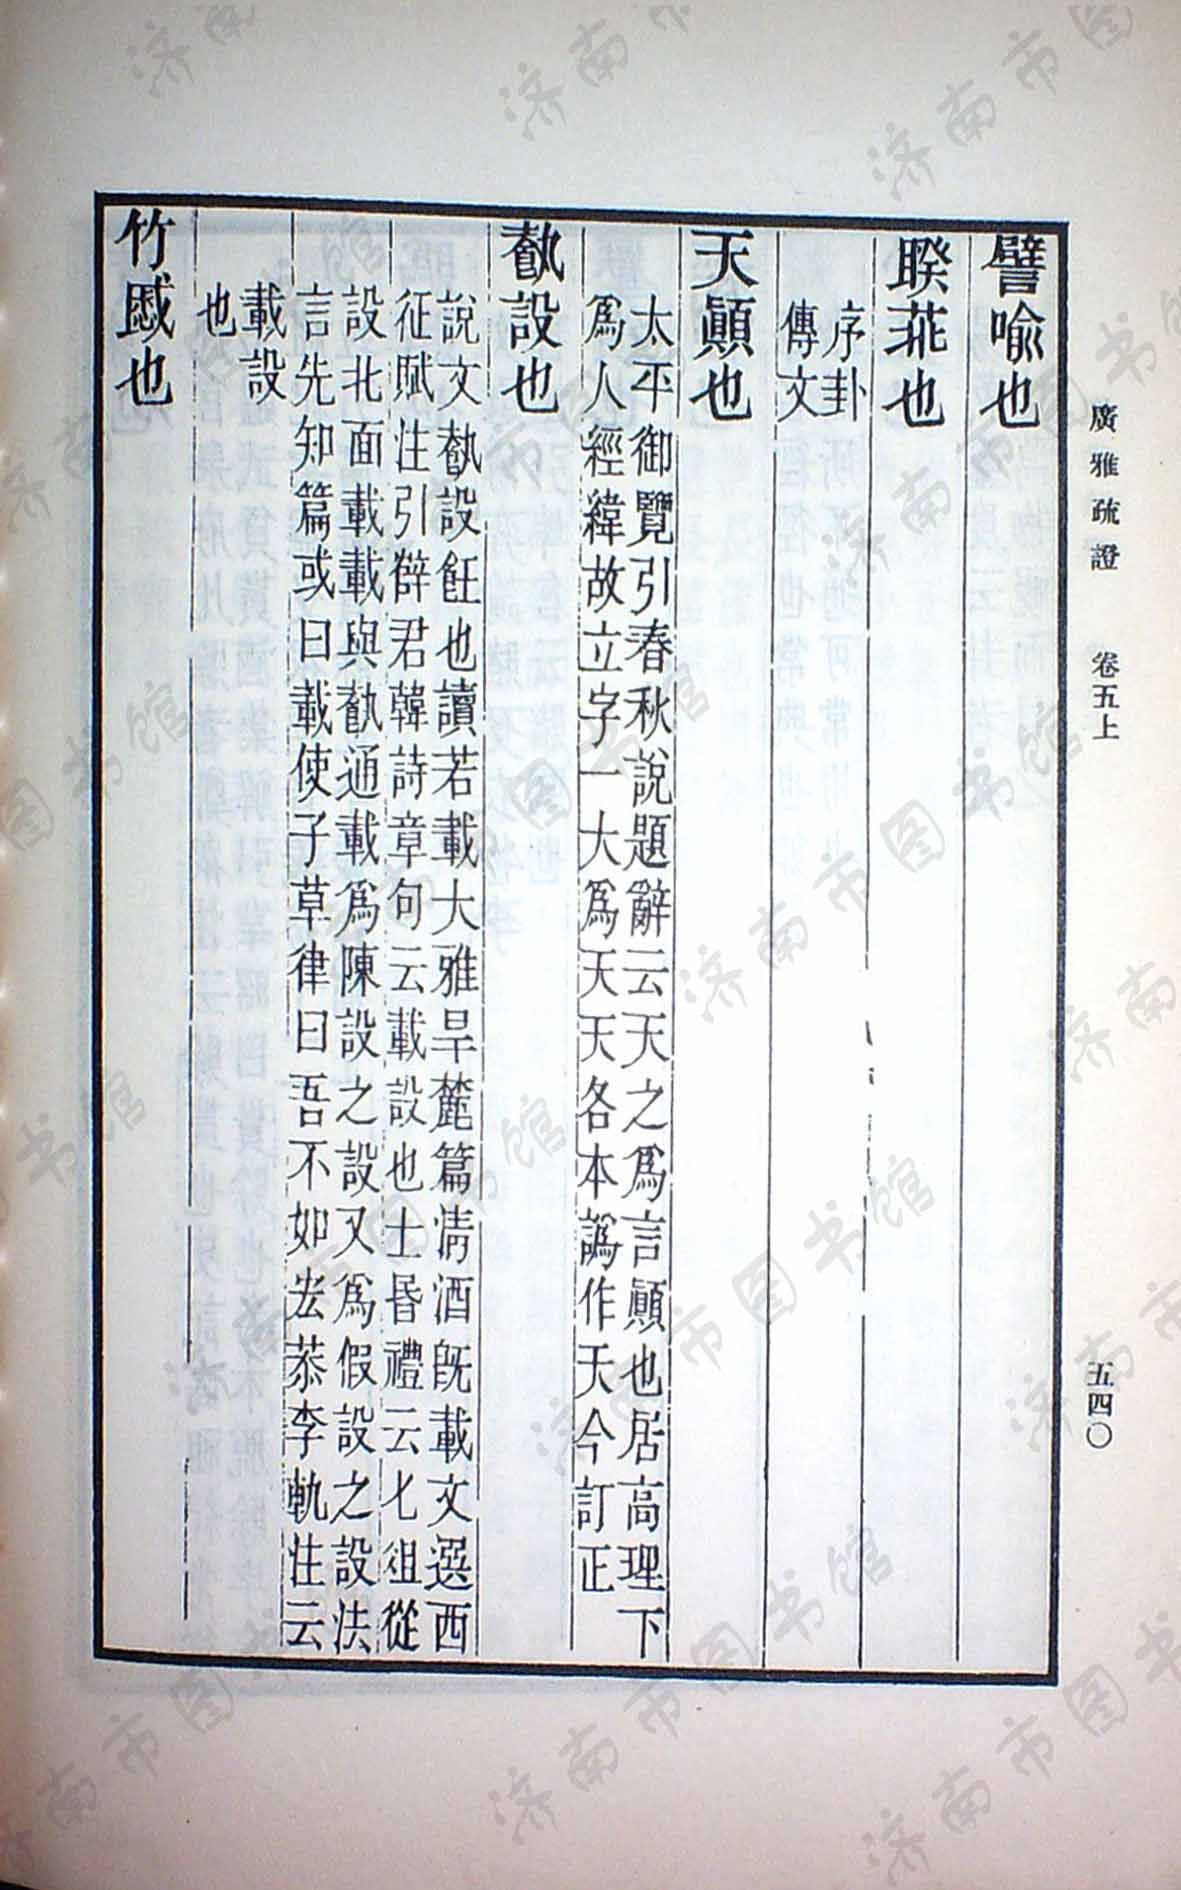 廣雅疏證　卷五上　五四〇
譬喻也
睽乖也
序卦
傳文
天顚也
太平御覽引春秋說題辭云天之爲言顚也居高理下
爲人經緯故立字一大爲天天各本譌作天今訂正
𩛥設也
說文𩛥設飪也讀若載大雅旱麓篇淸酒旣載文選西
征賦注引薛君韓詩章句云載設也士昏禮云匕俎從
設北面載載與𩛥通載爲陳設之設又爲假設之設法
言先知篇或曰載使子草律曰吾不如宏恭李軌注云
載設
也
竹也
济南市图书馆